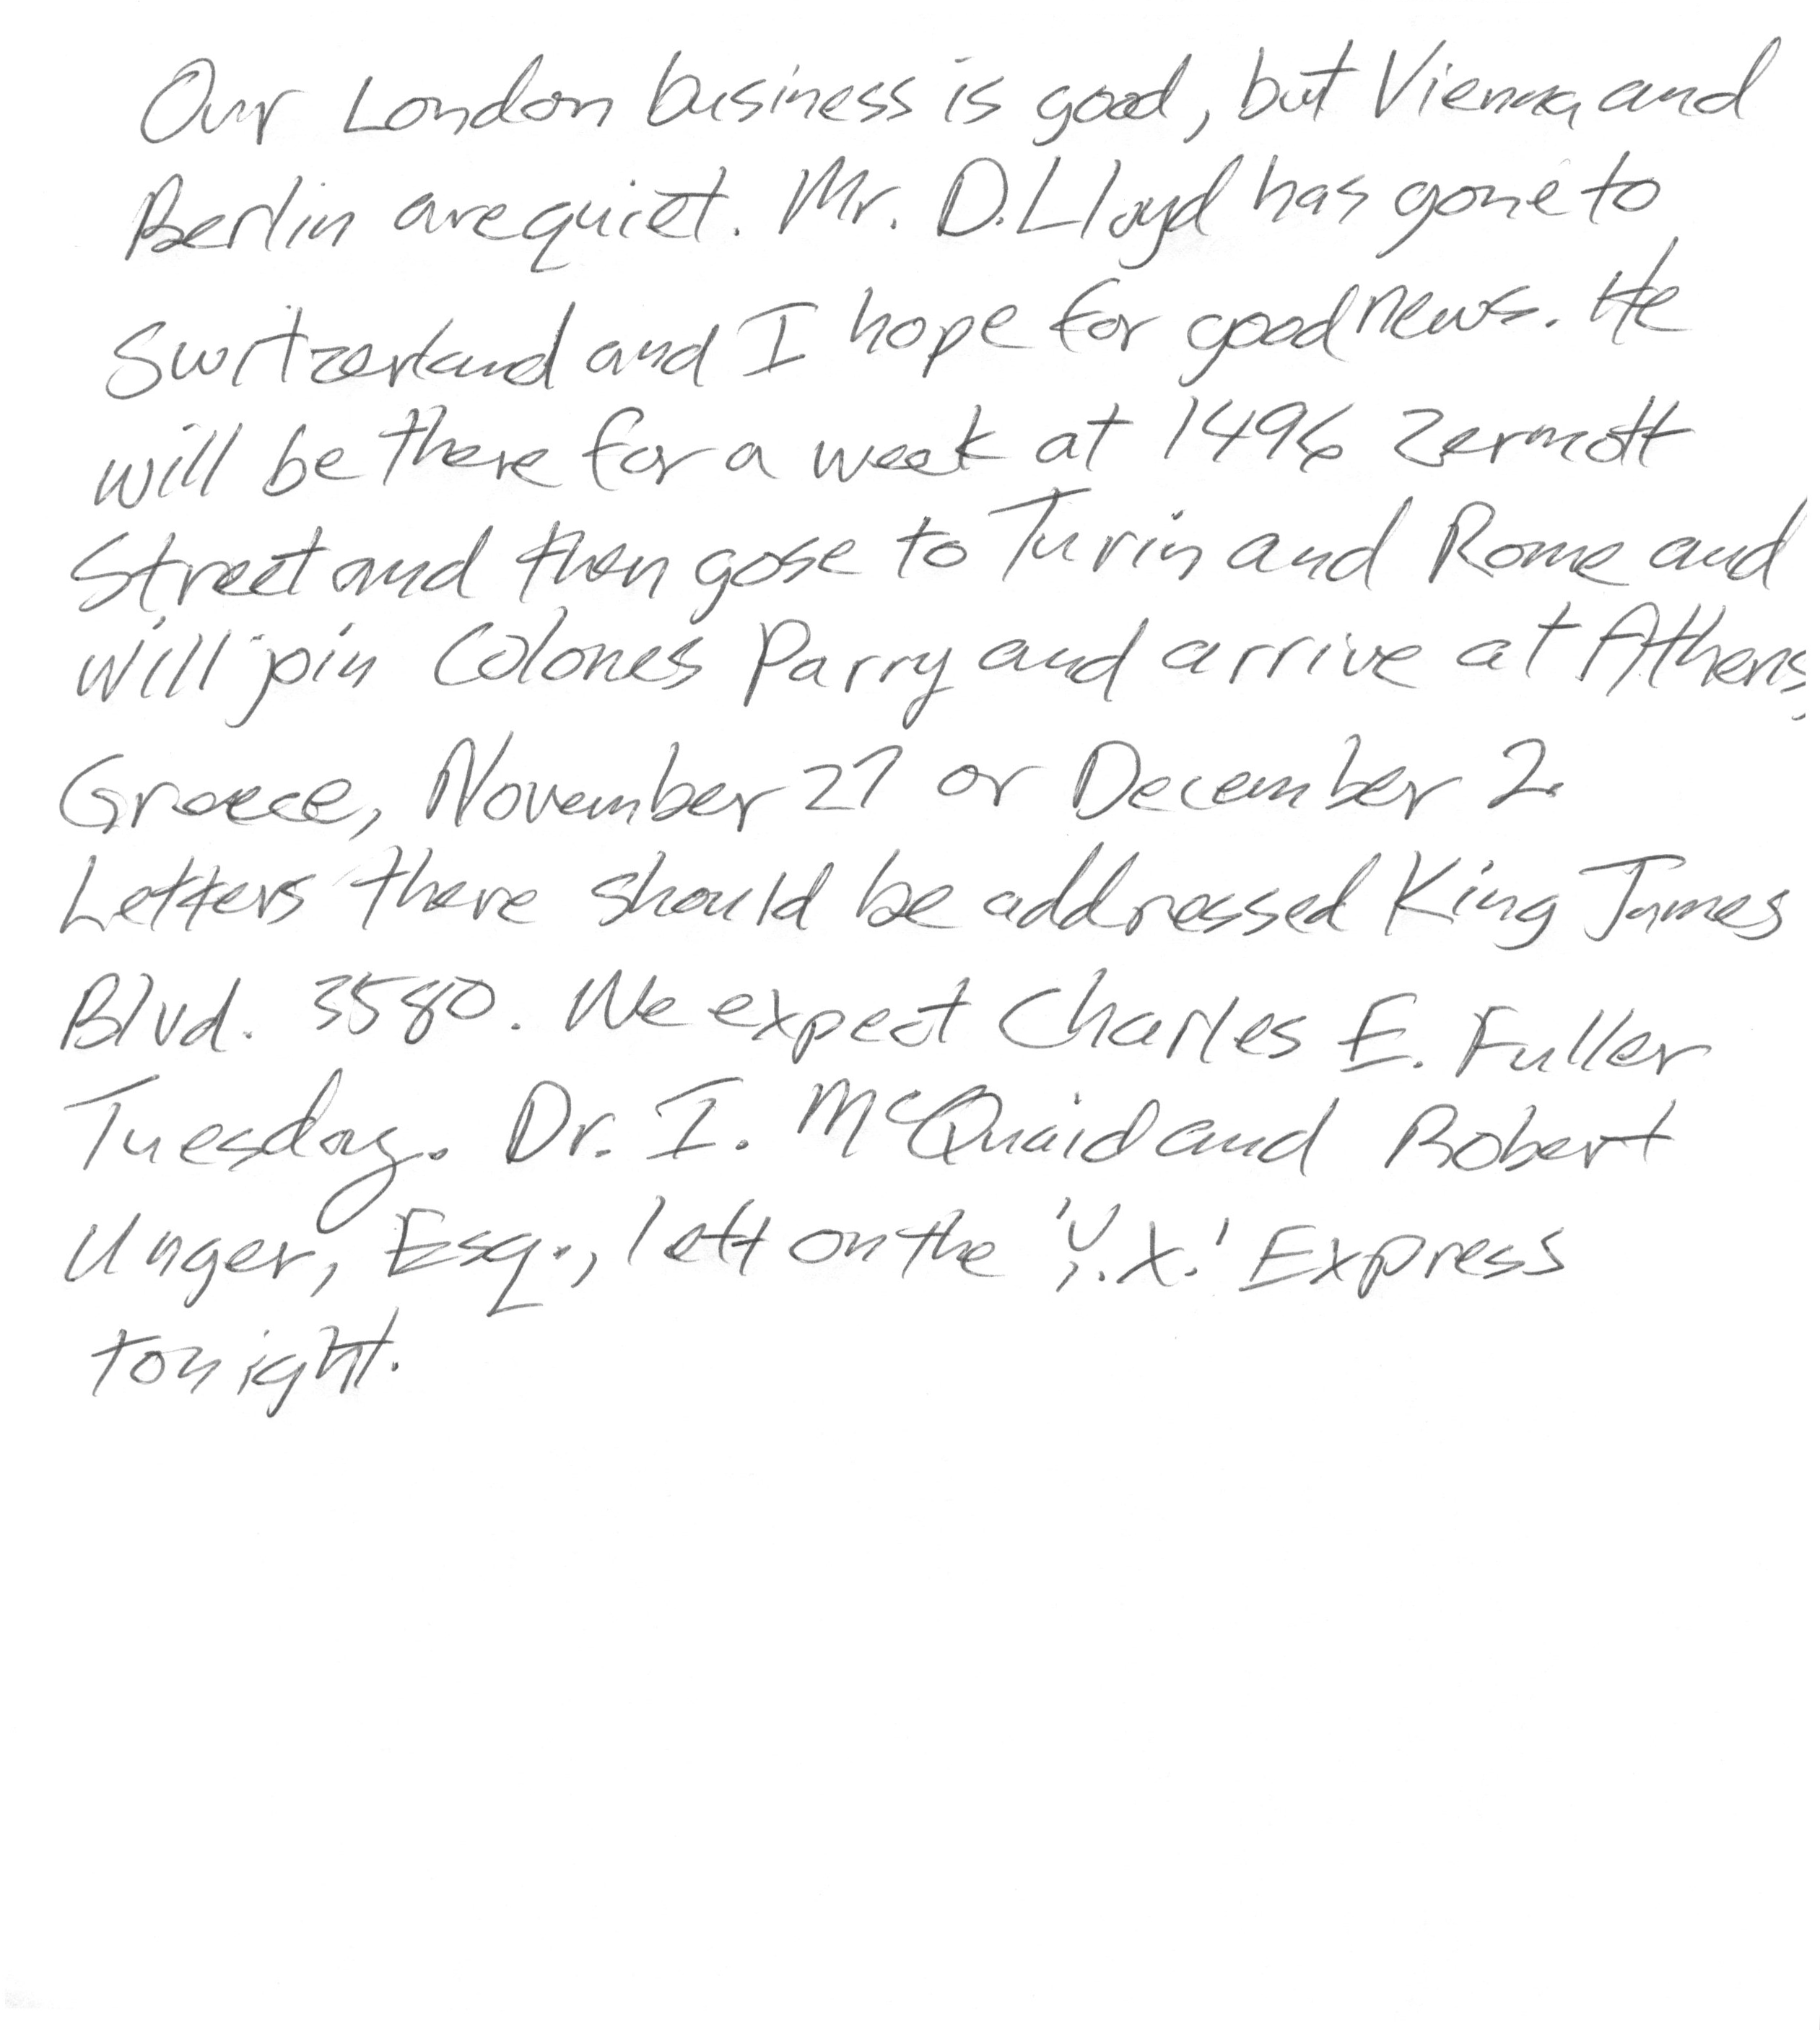 Our London business is good, but Vienna and
Berlin are quiet. Mr. D. Lloyd has gone to
Switzerland and I hope for good news. He
will be there for a week at 1496 Zermott
Street and then gose to Turin and Rome and
will join Colones Parry and arrive at Athens,
Greece, November 27 or December 2.
Letters there should be addressed King James
Blvd. 3580. We expect Charles E. Fuller
Tuesday. Dr. I. McQuaid and Robert
Unger, Esq., left on the 'Y.X.' Express
tonight.